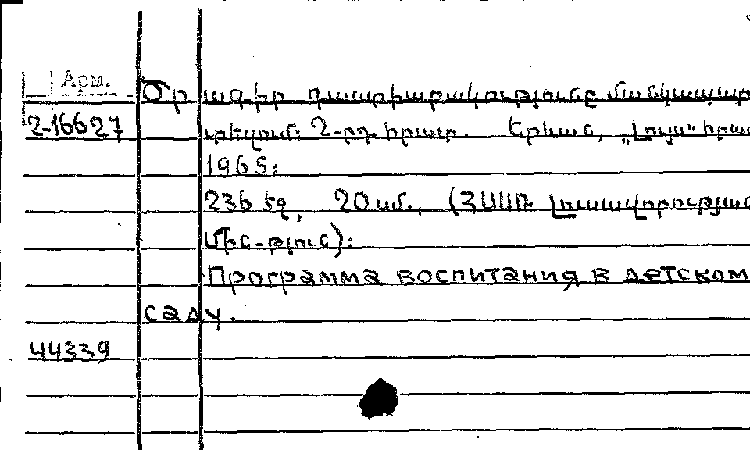 Арм.
Ծր ագիր դաստիարակությունը մանկապար
2-16627 տեզում: 2-րդ հրատ. Երևան, „Լույս" հրատ
1965:
236 էջ, 20 սմ., (ՀՍՍՌ Լուսավորության
Մին-թյուն):
Программа воспитания в детском
саду.
44339